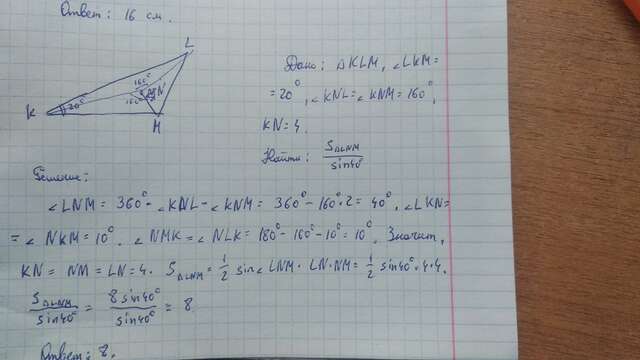 Ответ: 16 см.
L
160°
160°
N
20°
K
M
Дано: △KLM, ∠LKM =
= 20°, ∠KNL = ∠KNM = 160°,
KN = 4.
Найти: S△LNM / sin40°
Решение:
∠LNM = 360° - ∠KNL - ∠KNM = 360° - 160°·2 = 40°. ∠LKN =
= ∠NKM = 10°. ∠NMK = ∠NLK = 180° - 160° - 10° = 10°. Значит,
KN = NM = LN = 4. S△LNM = 1/2 sin∠LNM · LN·NM = 1/2 sin40°·4·4.
S△LNM / sin40° = 8sin40° / sin40° = 8
Ответ: 8.